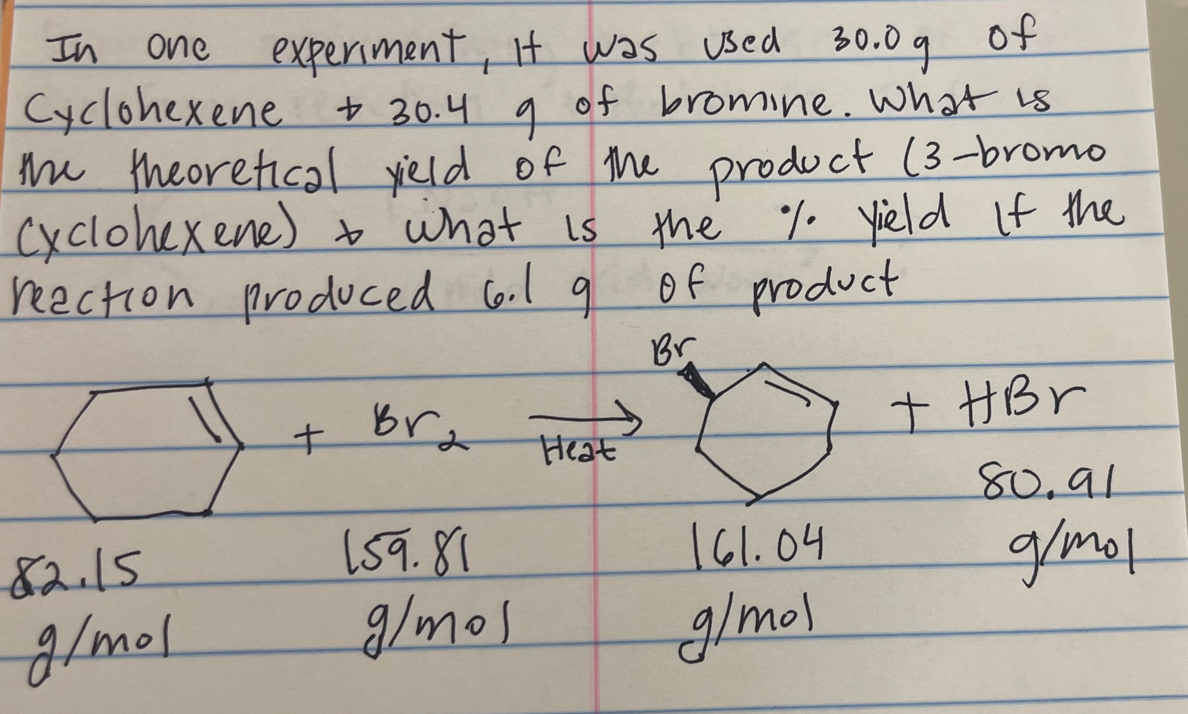 In one experiment, it was used 30.0 g of
Cyclohexene + 30.4 g of bromine. What is
the theoretical yield of the product (3-bromo
cyclohexene) + what is the % yield if the
reaction produced 6.1 g of product
Br
+ Br2 Heat + HBr
80.91
g/mol
82.15 159.81 161.04
g/mol g/mol g/mol